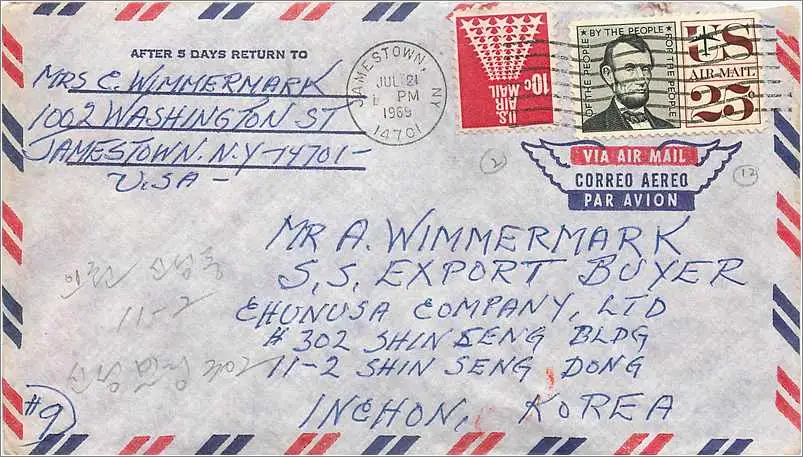 AFTER 5 DAYS RETURN TO
MRS C. WIMMERMARK
1002 WASHINGTON ST
JAMESTOWN. N.Y-14701-
U.S.A-
JAMESTOWN, NY
JUL 21
PM
1969
14701
10c
U.S.
AIR
MAIL
OF THE PEOPLE ★ BY THE PEOPLE ★ FOR THE PEOPLE
US
AIR MAIL
25c
VIA AIR MAIL
CORREO AEREO
PAR AVION
2
12
MR A. WIMMERMARK
S.S. EXPORT BUYER
CHUNUSA COMPANY, LTD
#302 SHIN SENG BLDG
11-2 SHIN SENG DONG
INCHON, KOREA
11-2
#9